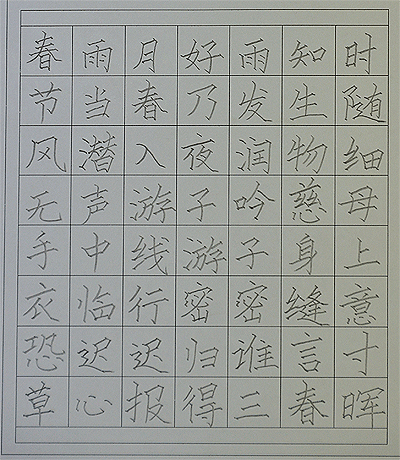 春雨月好雨知时
节当春乃发生随
风潜入夜润物细
无声游子吟慈母
手中线游子身上
衣临行密密缝意
恐迟迟归谁言寸
草心报得三春晖